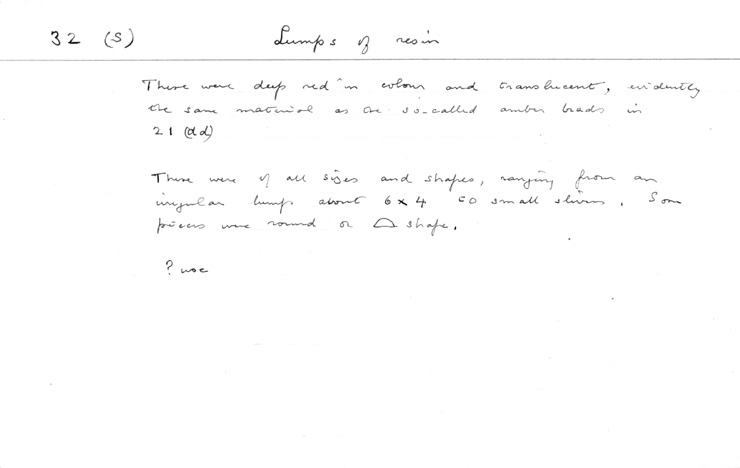 32 (s) Lumps of resin
These were deep red in colour and translucent, evidently
the same material as the so-called amber beads in
21 (dd)
These were of all sizes and shapes, ranging from an
irregular lump about 6 x 4 to small slivers. Some
pieces were round or ⌓ shape.
? use